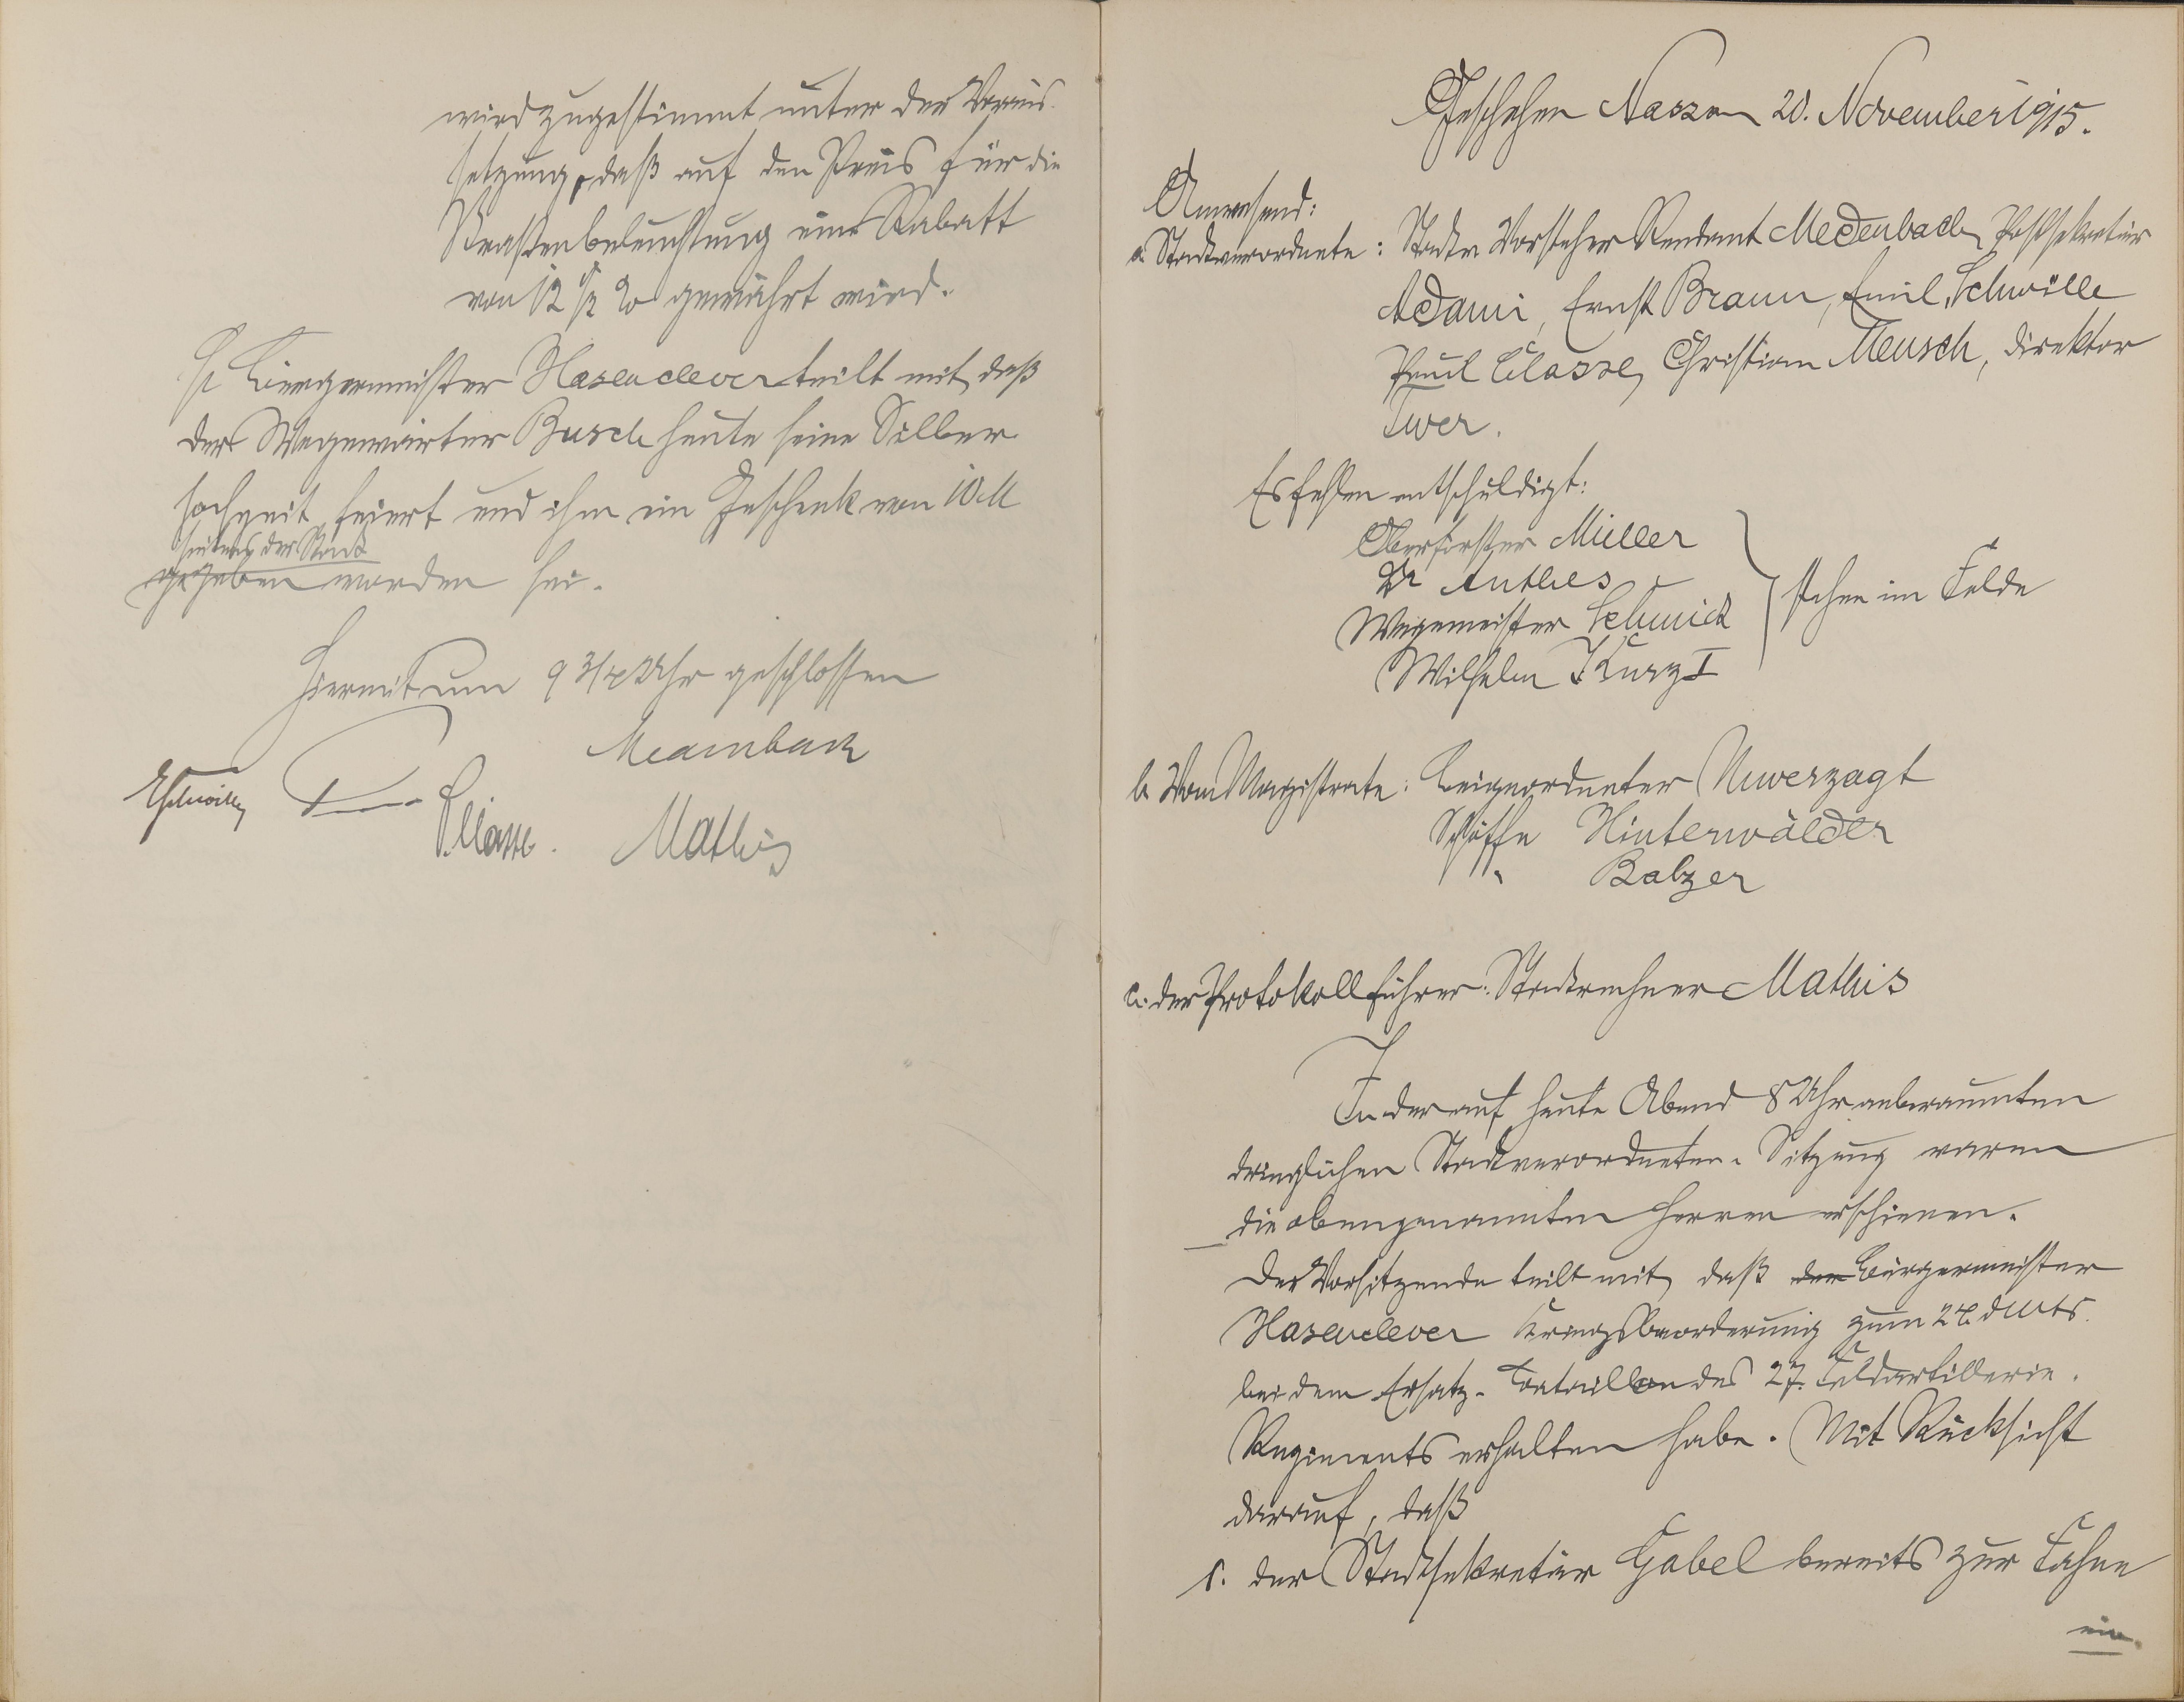 wird zugestimmt unter der Voraus-
setzung, daß auf den Preis für die
Straßenbeleuchtung ein Rabatt
von 12 1/2 % gewährt wird.
Hr Bürgermeister Hasenclever teilt mit, daß
der Wegewärter Busch heute seine Silber
hochzeit feiert und ihm ein Geschenk von 10 M
seitens der Stadt
gegeben worden sei.
Hiermit um 9 3/4 Uhr geschlossen
Medenbach
ESchwille
P. Classe. Mathis
Geschehen Nassau 20. November 1915.
Anwesend:
a. Stadtverordnete: Stadtv Vorsteher Rendant Medenbach, Postsekretär
Adami, Ernst Braun, Emil Schwille
Paul Classe, Christian Meusch, Direktor
Twer.
Es fehlen entschuldigt:
Oberförster Müller
Dr Anthes
Wegemeister Schmidt
stehen im Felde
Wilhelm Kurz I
b. Vom Magistrate: Beigeordneter Unverzagt
Schöffe Hinterwälder
" Balzer
c. der Protokollführer: Stadtrechner Mathis
In der auf heute Abend 8 Uhr anberaumten
dringlichen Stadtverordneten-Sitzung waren
die obengenannten Herren erschienen.
Der Vorsitzende teilt mit, daß der Bürgermeister
Hasenclever Kriegsbeorderung zum 24. d Mts.
bei dem Ersatz-Bataillon des 27. Feldartillerie-
Regiments erhalten habe. Mit Rücksicht
darauf, daß
1. der Stadtsekretär Gabel bereits zur Fahne
ein-